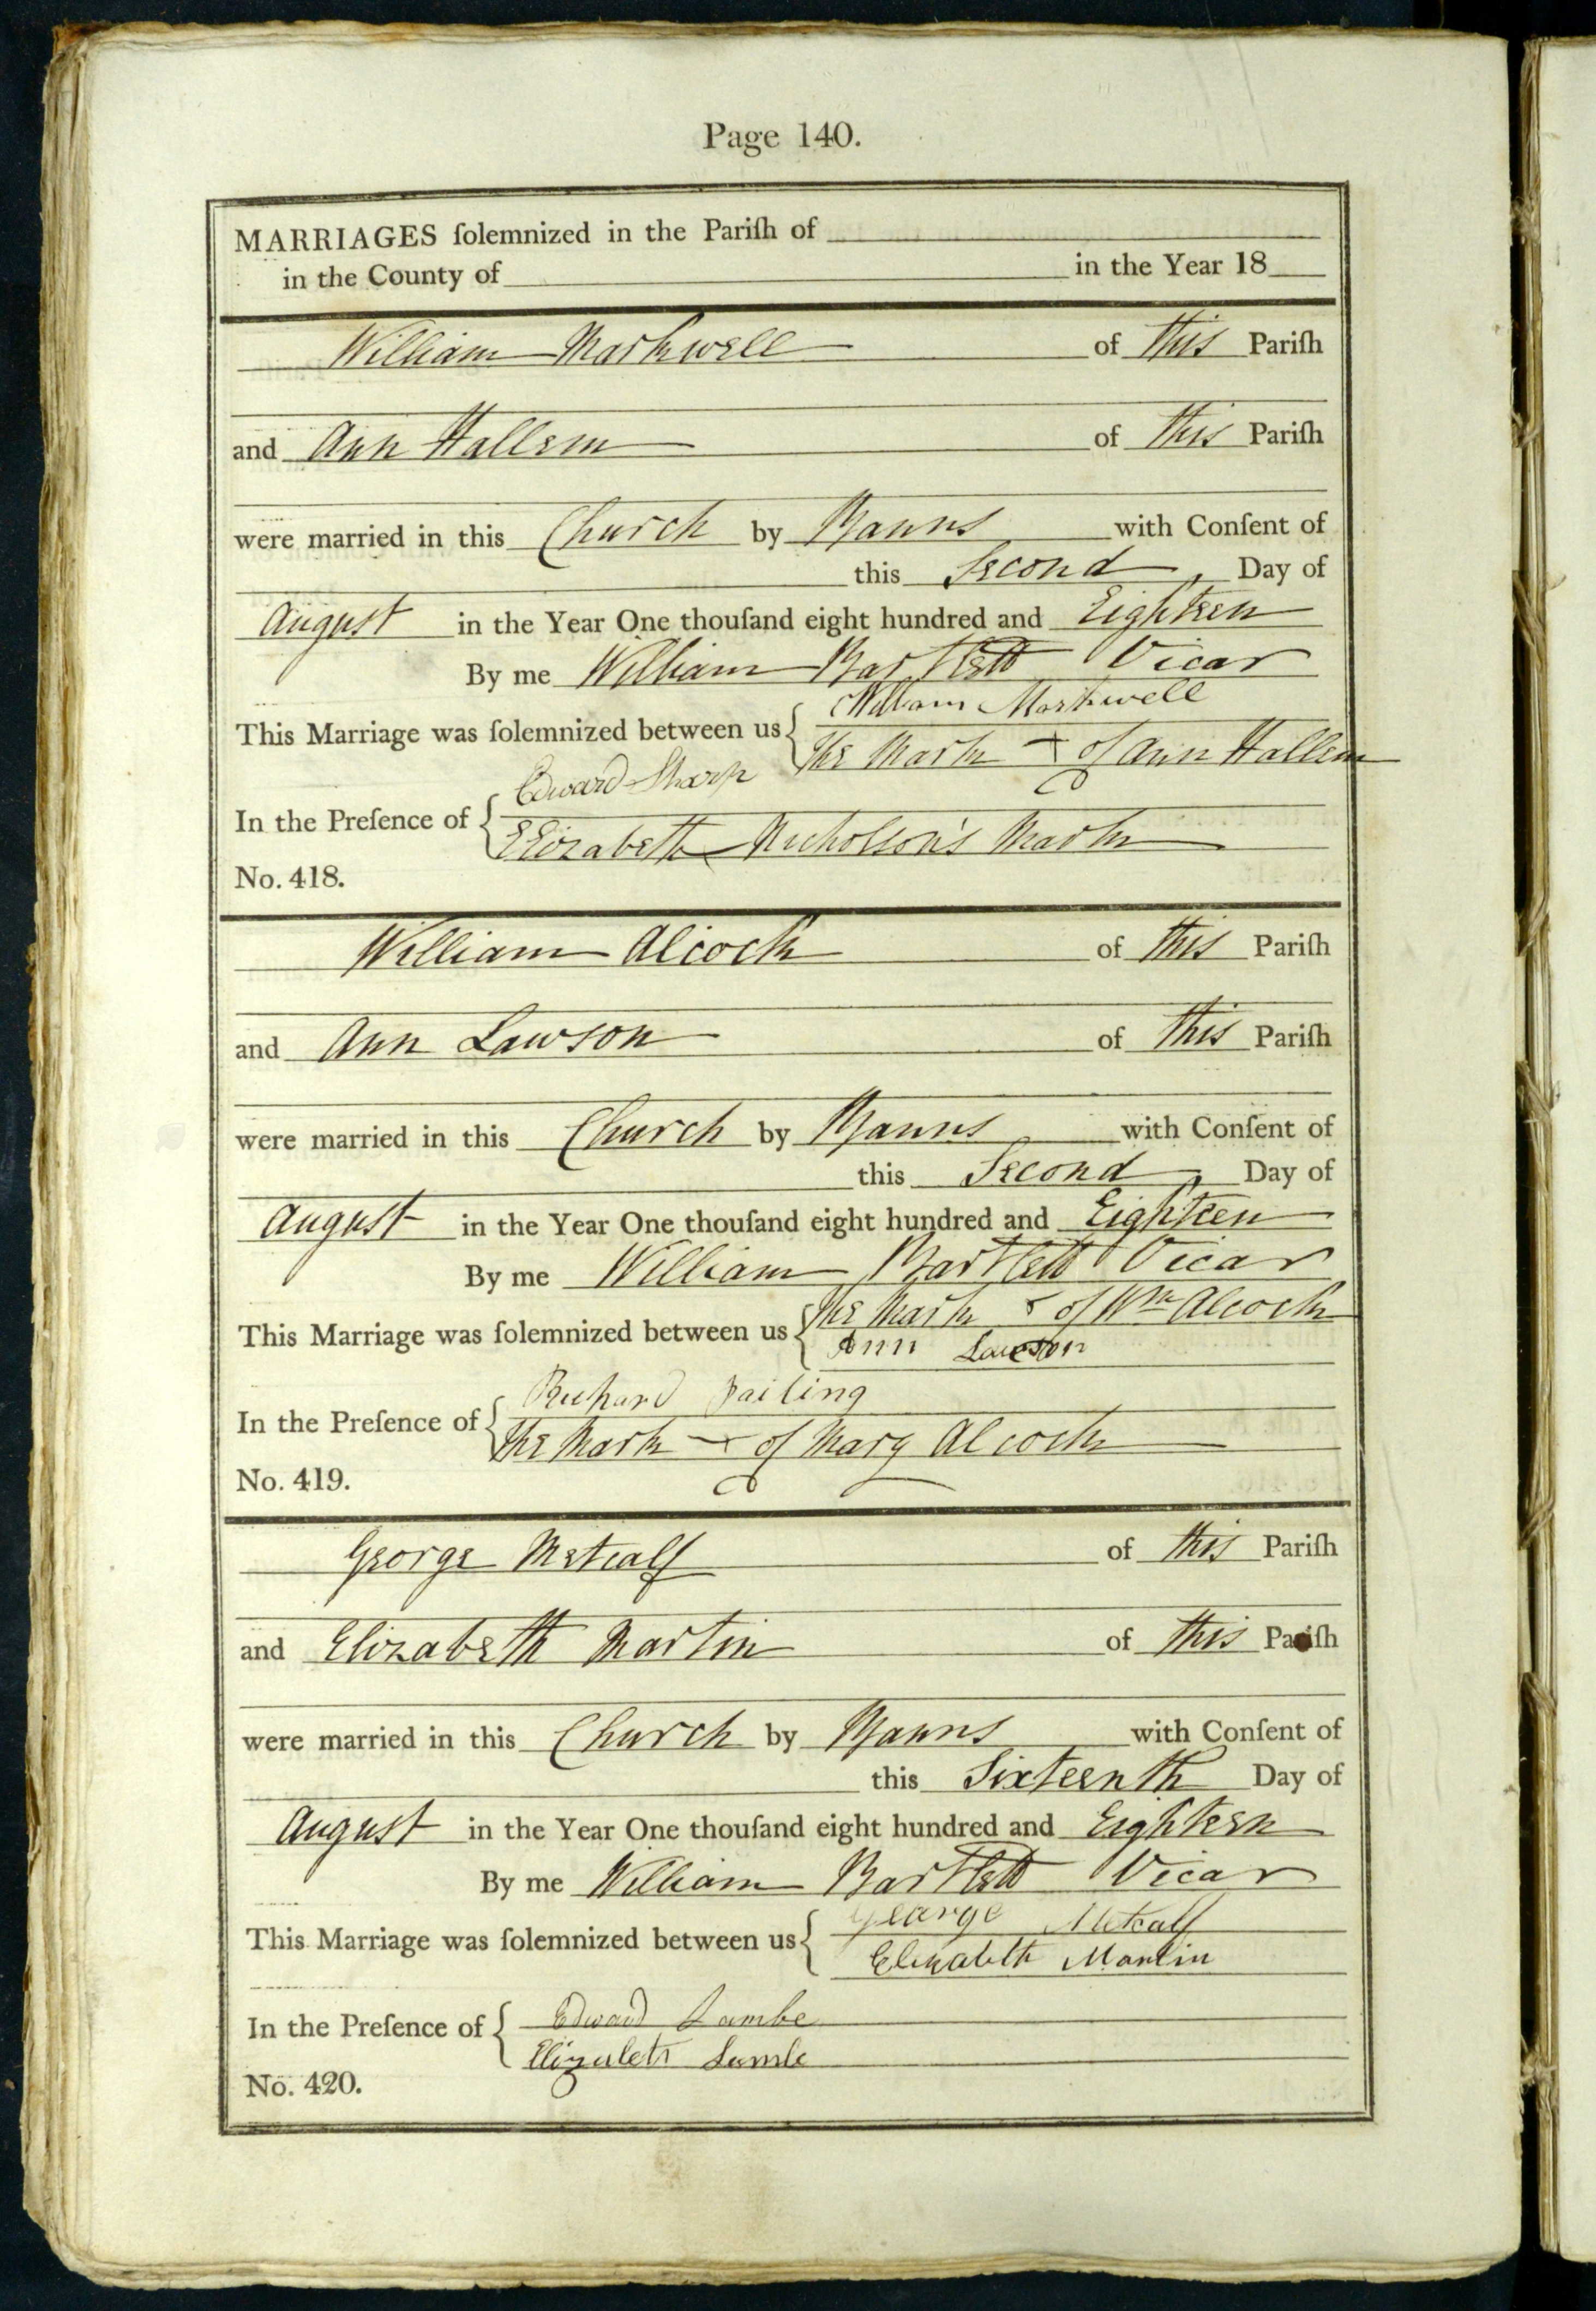 Page 140.
MARRIAGES ſolemnized in the Pariſh of
in the County of in the Year 18
William Markwell of this Pariſh
and Ann Hallem of this Pariſh
were married in this Church by Banns with Conſent of
this Second Day of
August in the Year One thouſand eight hundred and Eighteen
By me William Bartlett Vicar
This Marriage was ſolemnized between us { William Markwell
The Mark + of Ann Hallem
In the Preſence of { Edward Sharp
Elizabeth Nicholson's Mark
No. 418.
William Alcock of this Pariſh
and Ann Lawson of this Pariſh
were married in this Church by Banns with Conſent of
this Second Day of
August in the Year One thouſand eight hundred and Eighteen
By me William Bartlett Vicar
This Marriage was ſolemnized between us { The Mark x of Wm Alcock
Ann Lawson
In the Preſence of { Richard Pailing
The Mark + of Mary Alcock
No. 419.
George Metcalf of this Pariſh
and Elizabeth Martin of this Pariſh
were married in this Church by Banns with Conſent of
this Sixteenth Day of
August in the Year One thouſand eight hundred and Eighteen
By me William Bartlett Vicar
This Marriage was ſolemnized between us { George Metcalf
Elizabeth Martin
In the Preſence of { Edward Lambe
Elizabeth Lambe
No. 420.